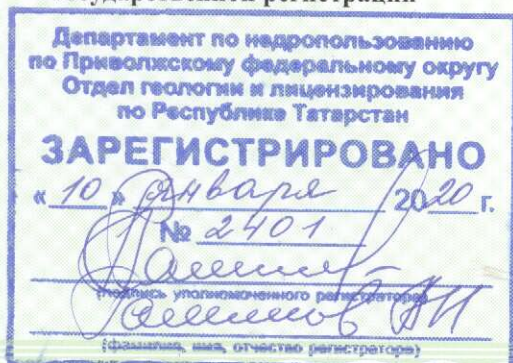 государственной регистрации
Департамент по недропользованию
по Приволжскому федеральному округу
Отдел геологии и лицензирования
по Республике Татарстан
ЗАРЕГИСТРИРОВАНО
«10» января 2020 г.
№ 2401
(подпись уполномоченного регистратора)
(фамилия, имя, отчество регистратора)